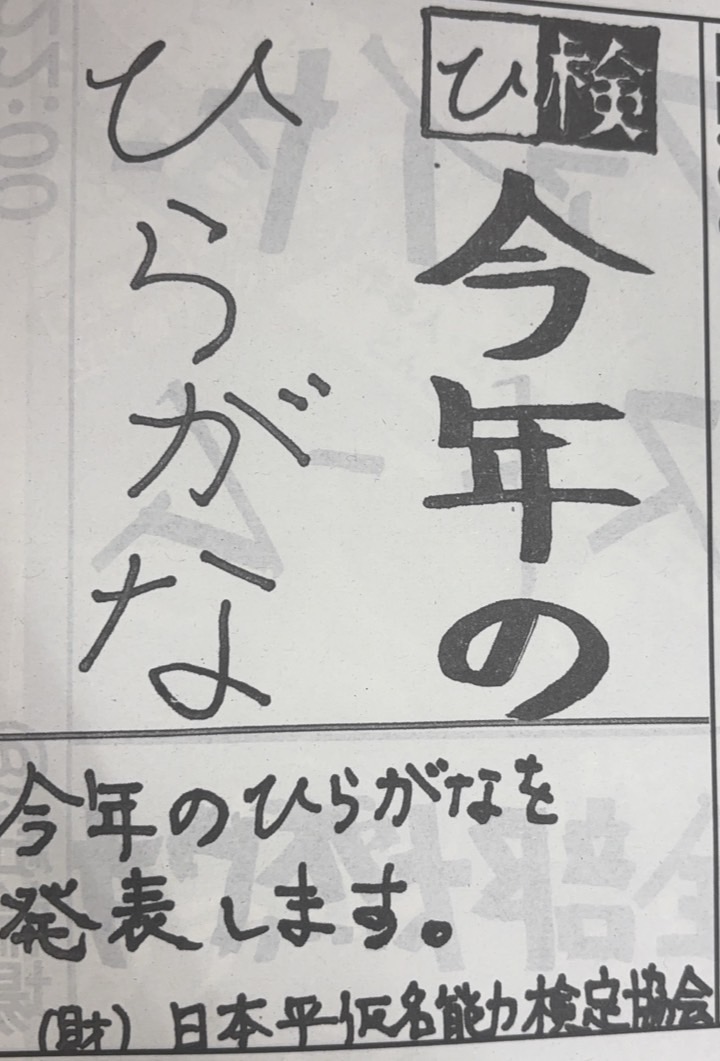 ひ検
今年の
ひらがな
今年のひらがなを
発表します。
(財) 日本平仮名能力検定協会
22:00